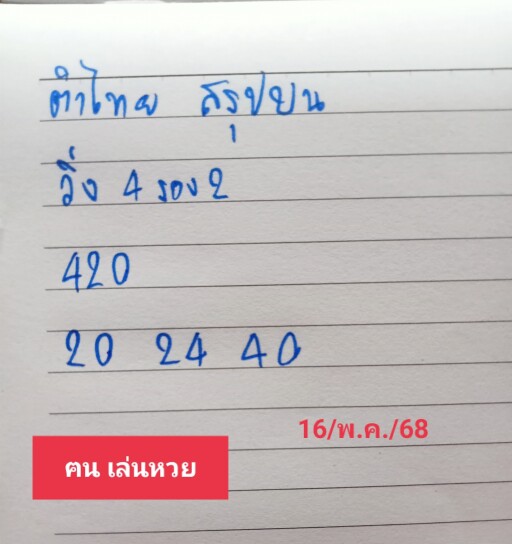 ตำไทย สรุปบน
วิ่ง 4 รอง 2
420
20 24 40
16/พ.ค./68
ฅน เล่นหวย